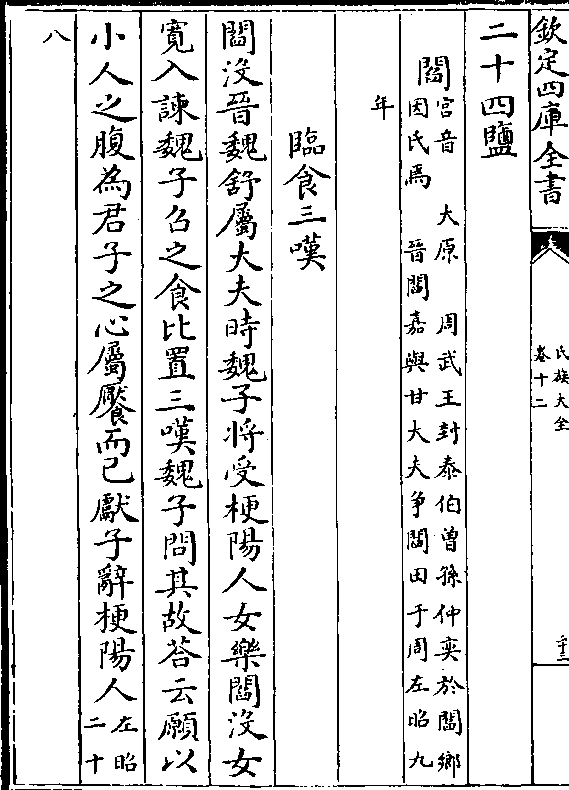 欽定四庫全書
氏族大全
卷十二
二十四鹽
閻宮音 大原 周武王封泰伯曾孫仲奕於閻鄉
因氏焉 晉閻嘉與甘大夫争閻田于周左昭九
年
臨食三嘆
閻沒晉魏舒屬大夫時魏子將受梗陽人女樂閻沒女
寛入諫魏子召之食比置三嘆魏子問其故荅云願以
小人之腹為君子之心屬饜而已獻子辭梗陽人左昭
二十
八